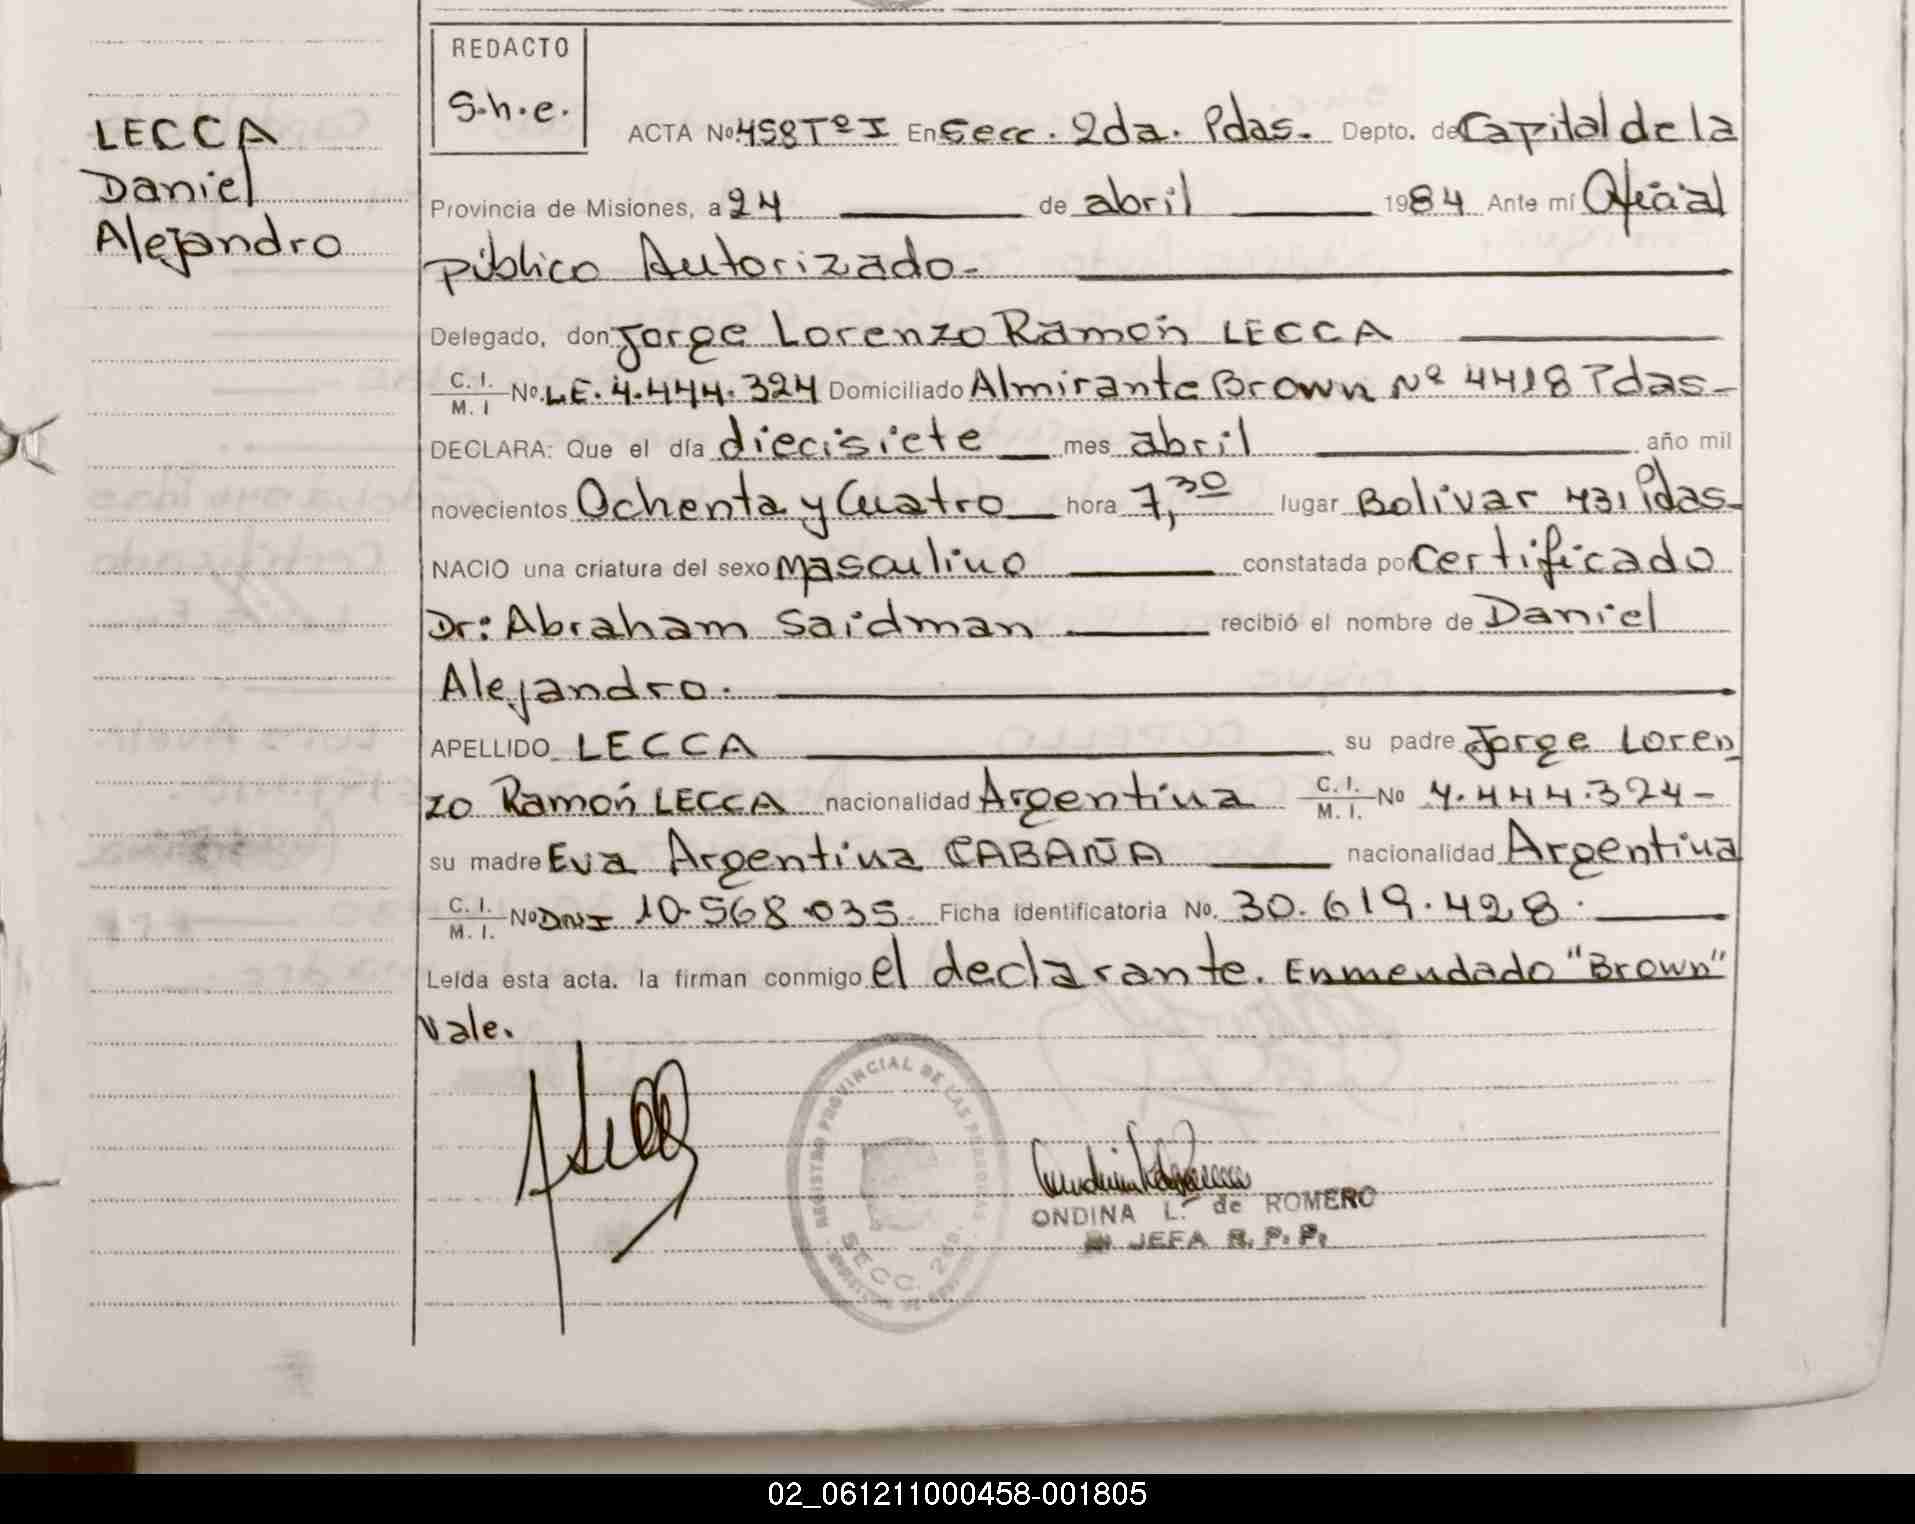 REDACTO
S.h.e.
LECCA
Daniel
Alejandro
ACTA Nº 458 Tº I En Secc. 2da. Pdas. Depto. de Capital de la
Provincia de Misiones, a 24 de abril 1984 Ante mí Oficial
público Autorizado.
Delegado, don Jorge Lorenzo Ramón LECCA
C. I. / M. I Nº. LE. 4.444.324 Domiciliado Almirante Brown Nº 4418 Pdas-
DECLARA: Que el día diecisiete mes abril año mil
novecientos Ochenta y Cuatro hora 7,30 lugar Bolivar 431 Pdas-
NACIO una criatura del sexo masculino constatada por Certificado
Dr: Abraham Saidman recibió el nombre de Daniel
Alejandro.
APELLIDO LECCA su padre Jorge Loren
zo Ramón LECCA nacionalidad Argentina C. I. / M. I. Nº 4.444.324-
su madre Eva Argentina CABAÑA nacionalidad Argentina
C. I. / M. I. Nº DNI 10.568.035. Ficha identificatoria Nº. 30.619.428.
Leída esta acta. la firman conmigo el declarante. Enmendado "Brown"
Vale.
REGISTRO PROVINCIAL DE LAS PERSONAS
SECC. 2da.
ONDINA L. de ROMERO
JEFA R. P. P.
02_061211000458-001805